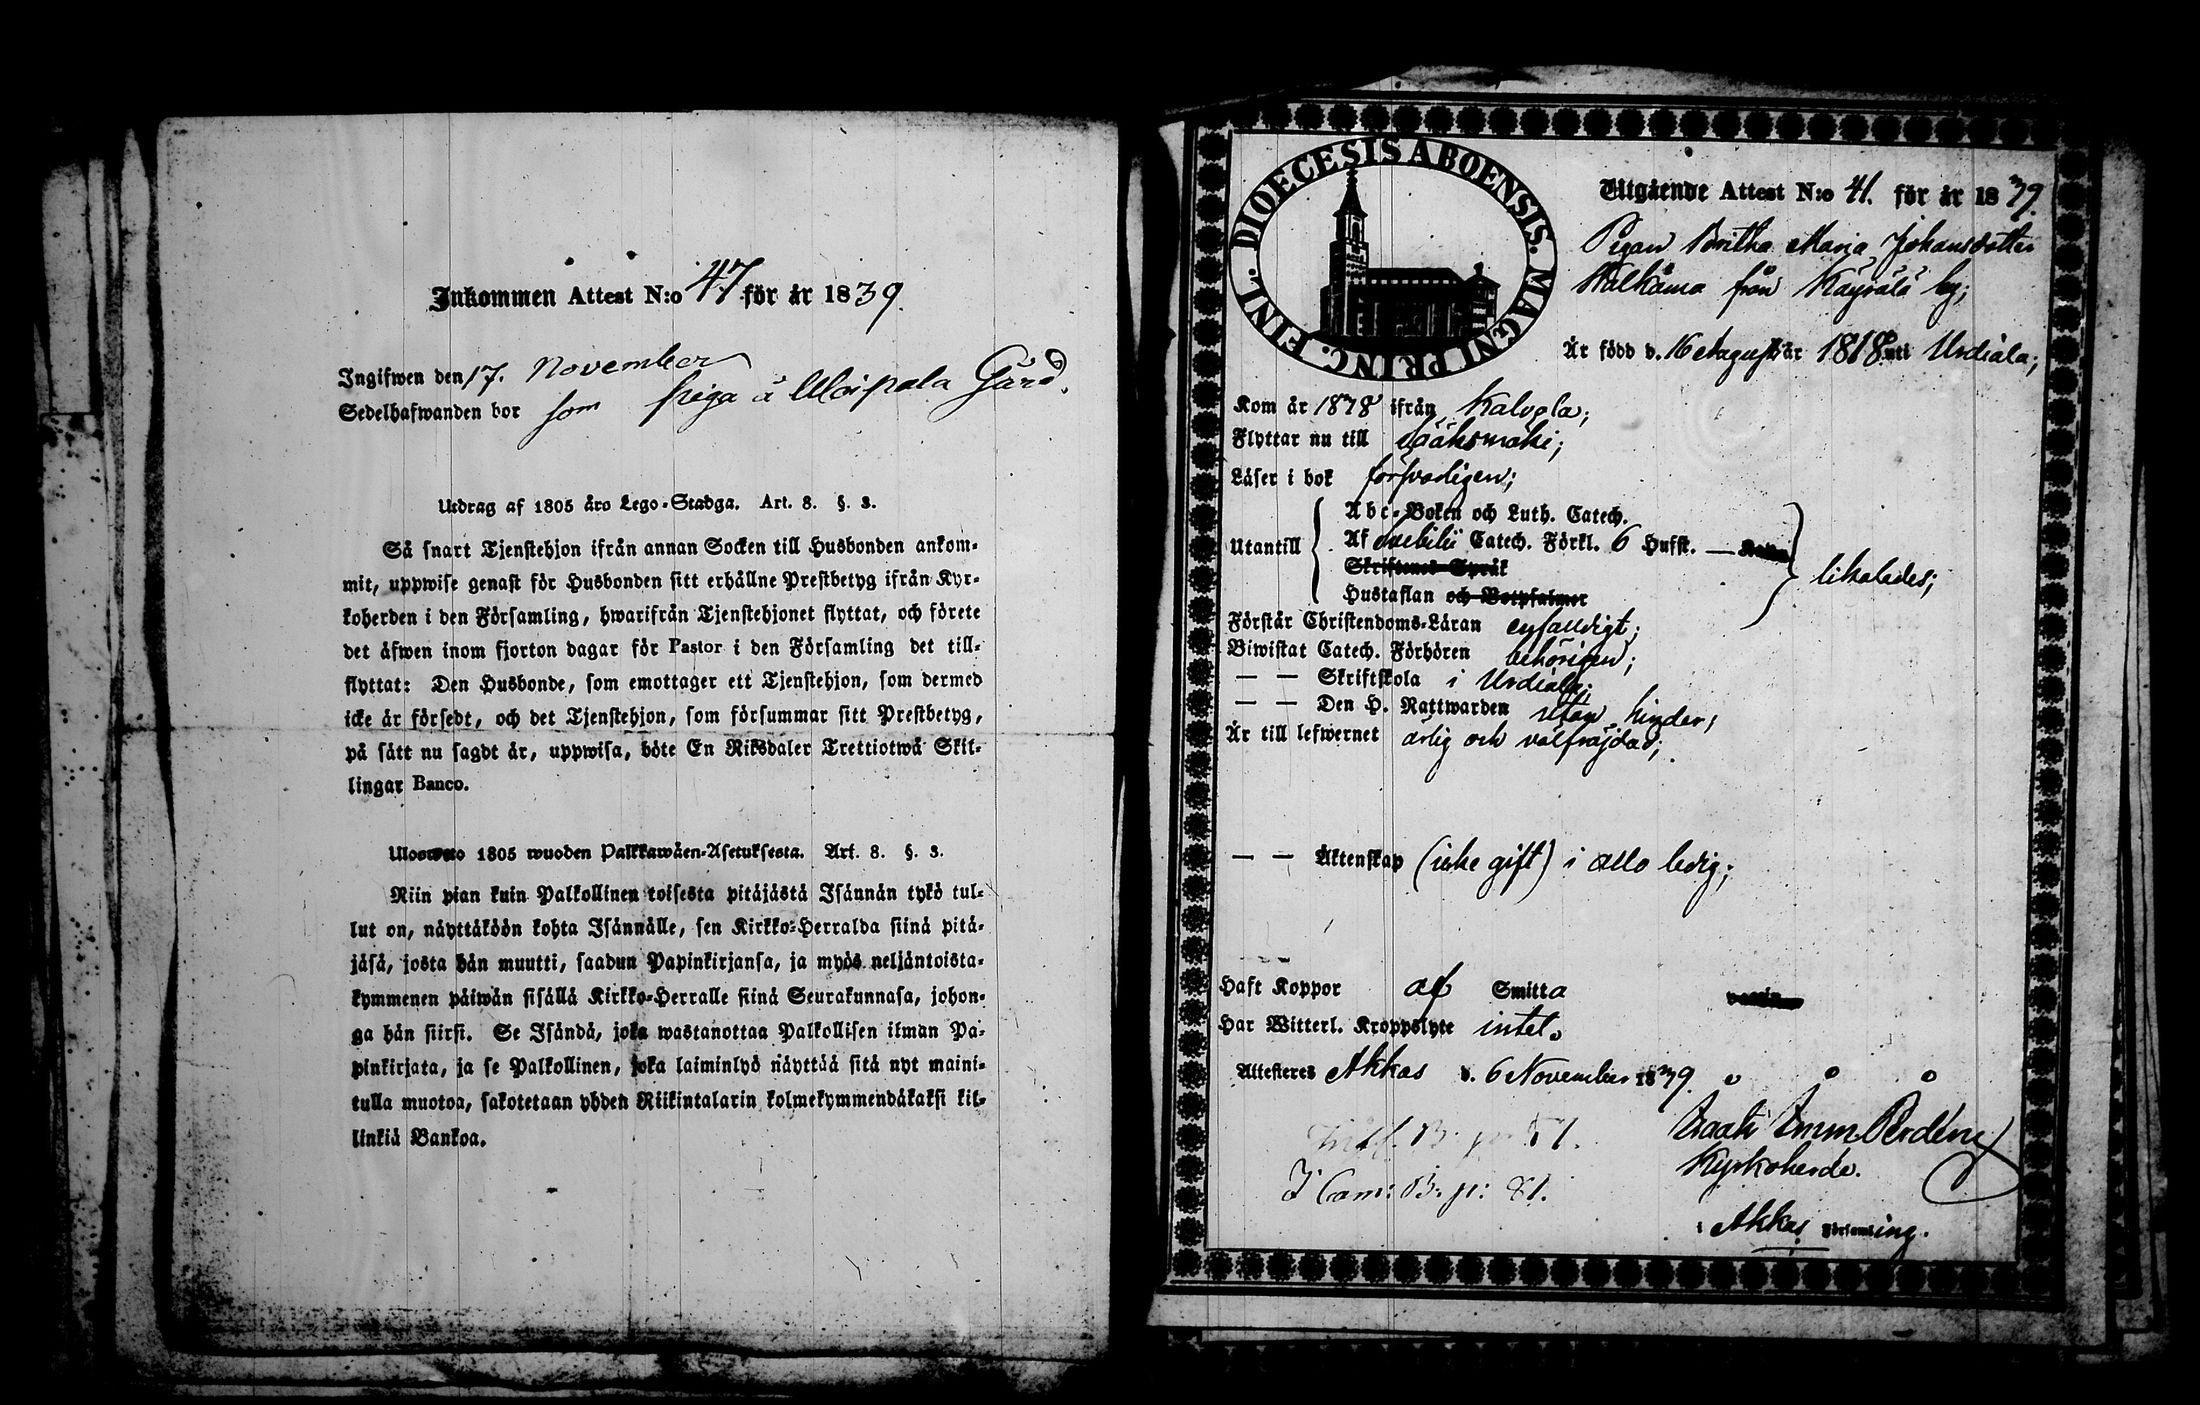 Inkommen Attest N:o 47 för år 1839.
Ingifwen den 17. November
Sedelhafwanden bor som piga å Moipala Gård.
Utdrag af 1805 års Lego-Stadga. Art. 8. §. 3.
Så snart Tjenstehjon ifrån annan Socken till Husbonden ankom-
mit, uppwise genast för Husbonden sitt erhållne Prestbetyg ifrån Kyr-
koherden i den Församling, hwarifrån Tjenstehjonet flyttat, och förete
det äfwen inom fjorton dagar för Pastor i den Församling det till-
flyttat: Den Husbonde, som emottager ett Tjenstehjon, som dermed
icke är försedt, och det Tjenstehjon, som försummar sitt Prestbetyg,
på sätt nu sagdt är, uppwisa, böte En Riksdaler Trettiotwå Skil-
lingar Banco.
Uloswetto 1805 wuoden Palkkawäen-Asetuksesta. Art. 8. §. 3.
Niin pian kuin Palkollinen toisesta pitäjästä Isännän tykö tul-
lut on, näyttäköön kohta Isännälle, sen Kirkko-Herralda siinä pitä-
jäsä, josta hän muutti, saadun Papinkirjansa, ja myös neljäntoista-
kymmenen päiwän sisällä Kirkko-Herralle siinä Seurakunnasa, johon-
ga hän siirsi. Se Isändä, joka wastanottaa Palkollisen ilman Pa-
pinkirjata, ja se Palkollinen, joka laiminlyö näyttää sitä nyt maini-
tulla muotoa, sakotetaan yhden Riikintalarin kolmekymmendäkaksi kil-
linkiä Bankoa.
DIOECESIS ABOENSIS. MAGNI PRINC. FINL.
Utgående Attest N:o 41. för år 1839.
Pigan Britha Maria Johansdotter
Walkama från Käyrälä by;
Är född d. 16 Augusti år 1818 uti Urdiala;
Kom år 1838 ifrån Kalvola;
Flyttar nu till Sääksmäki;
Läser i bok försvarligen;
Abc-Boken och Luth. Catech.
Utantill Af Svebilii Catech. Förkl. 6 Hufst. —
Skriftenes Språk
Hustaflan och Botpsalmer
likaledes;
Förstår Christendoms-Läran enfaldigt;
Biwistat Catech. Förhören behörigen;
— — Skriftskola i Urdiala;
— — Den H. Nattwarden utan hinder;
Är till lefwernet ärlig och välfräjdad;
— — Äktenskap (icke gift) i allo ledig;
Haft Koppor af Smitta
Har Witterl. Kroppslyte intet.
Attesteres Akkas d. 6 November 1839.
Kyrkoherde.
I Com: B. p: 81.
i Akkas Församling.